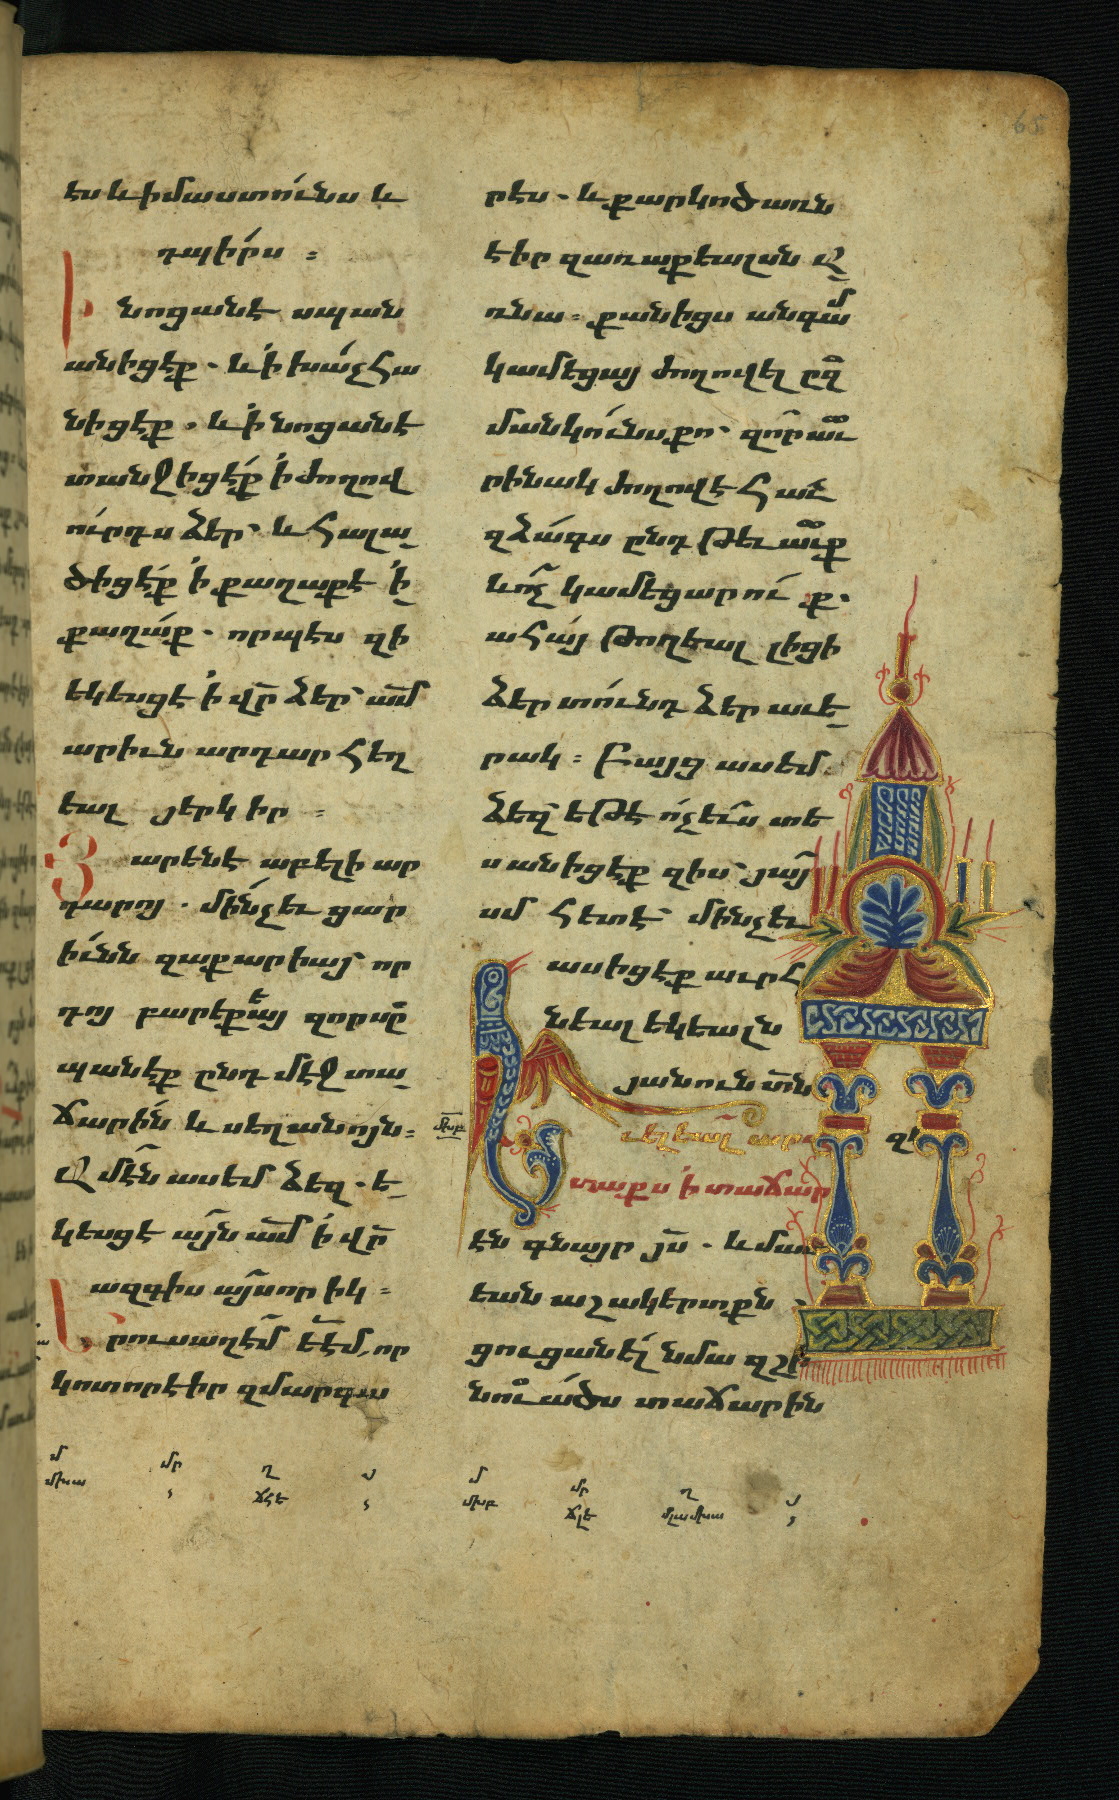 էս և իմաստունս և
դպիրս ։
ի նոցանէ սպան
անիցէք . և ի խաչ հա
նիցէք . և ի նոցանէ
տանջիցէք ի ժողով
ուրդս ձեր՝ և հալա
ծիցէք ի քաղաքէ ի
քաղաք . որպէս զի
եկեսցէ ի վր ձեր՝ ամ
արիւն արդար հեղ
եալ յերկիր ։
Յարենէ աբելի ար
դարոյ . մինչեւ ցար
իւնն զաքարիայ՝ որ
դոյ բարեքեայ զորսը
պանէք ընդ մէջ տա
ճարին և սեղանոյն։
Ամէն ասեմ ձեզ . ե
կեսցէ այն ամ ի վր
ազգիս այսորիկ ։
Երուսաղէմ եէմ, որ
կոտորէիր զմարգա
րէս . և քարկոծառն
էիր զառաքեալսն ա
ռնա ։ քանիցս անգամ
կամեցայ ժողովել ըզ
մանկունս քո՝ զոր աւ
րինակ ժողովէ հաւ
զձագս ընդ թեւաւք
և ոչ կամեցարու ք .
ահայ թողեալ լիցի
ձեր տունդ ձեր աւե
րակ ։ Բայց ասեմ
ձեզ եթէ ոչ ևս տե
սանիցէք զիս՝ յայ
սմ հետէ՝ մինչեւ
ասիցէք աւրհ
նեալ եկեալն
յանուն տն
Եւ ելեալ
տաքս ի տաճար
էն գնայր յս . և մատ
եան աշակերտքն
ցուցանել նմա զշի
նուածս տաճարին